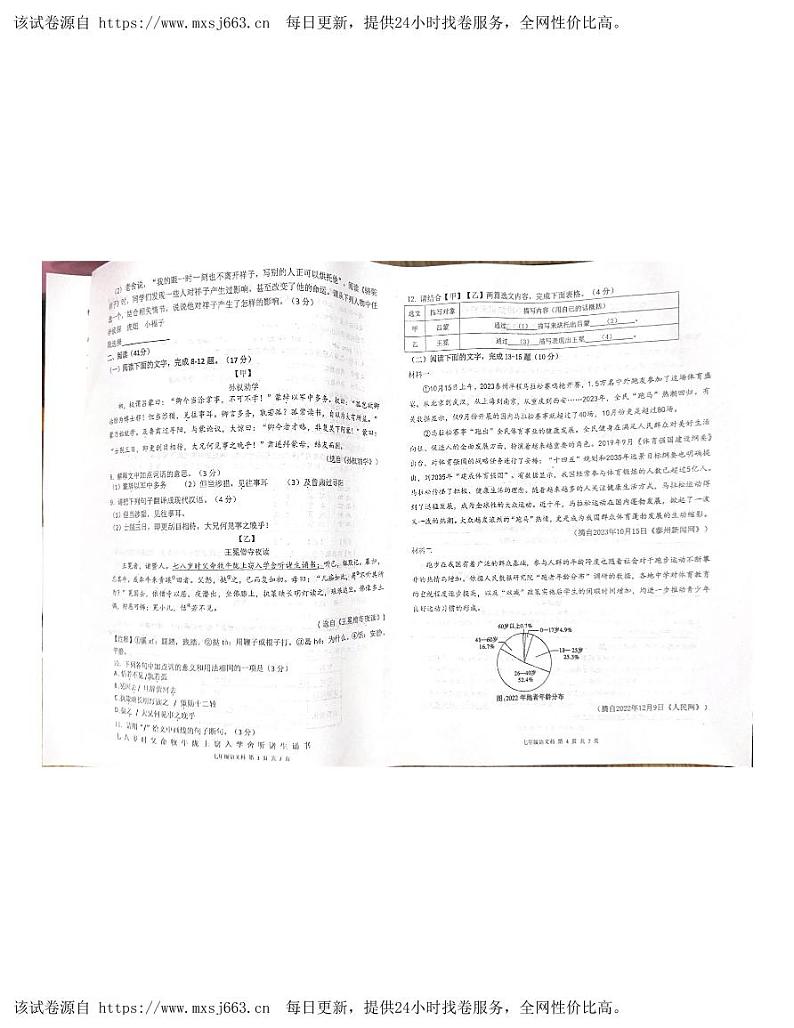 该试卷源自 https://www.mxsj663.cn 每日更新，提供24小时找卷服务，全网性价比高。
(2) 老舍说，“我的眼一时一刻也不离开祥子，写别的人正可以烘托他”。阅读《骆驼
祥子》时，同学们发现一些人对祥子产生过影响，甚至改变了他的命运。请从下列人物中任
选一个，结合相关情节，说说他对祥子产生了怎样的影响。（3分）
虎妞 小福子
我选择
二、阅读（41分）
(一) 阅读下面的文字，完成8-12题。（17分）
【甲】
孙权劝学
初，权谓吕蒙曰：“卿今当涂掌事，不可不学！”蒙辞以军中多务。权曰：“孤岂欲卿
治经为博士邪！但当涉猎，见往事耳。卿言多务，孰若孤？孤常读书，自以为大有所益。”
蒙乃始就学。及鲁肃过寻阳，与蒙论议，大惊曰：“卿今者才略，非复吴下阿蒙！”蒙曰：
“士别三日，即更刮目相待，大兄何见事之晚乎！”肃遂拜蒙母，结友而别。
（选自《孙权劝学》）
8. 解释文中加点词语的意思。（3分）
(1) 蒙辞以军中多务 (2) 但当涉猎，见往事耳 (3) 及鲁肃过寻阳
9. 请把下列句子翻译成现代汉语。（4分）
(1) 但当涉猎，见往事耳。
(2) 士别三日，即更刮目相待，大兄何见事之晚乎！
【乙】
王冕僧寺夜读
王冕者，诸暨人。七八岁时父命牧牛陇上窃入学舍听诸生诵书；听已，辄默记。暮归，
忘其牛，或牵牛来责蹊田者。父怒，挞之，已而复如初。母曰：“儿痴如此，曷不听其所
为？”冕因去，依僧寺以居。夜潜出，坐佛膝上，执策映长明灯读之，琅琅达旦。佛像多土
偶，狞恶可怖；冕小儿，恬若不见。
（选自《王冕僧寺夜读》）
【注释】①蹊 xī：踩踏，践踏。②挞 tà：用鞭子或棍子打。③曷 hé：为什么。④恬：安静，
10. 下列各句中加点词的意义和用法相同的一项是（3分）
A. 恬若不见 / 孰若孤
B. 冕因去 / 
C. 执策映长明灯读之 / 策勋十二转
D. 挞之 / 大兄何见事之晚乎
11. 请用“/”给文中画线的句子断句。（3分）
七 八 岁 时 父 命 牧 牛 陇 上 窃 入 学 舍 听 诸 生 诵 书
七年级语文科 第 3 页 共 7 页
12. 请结合【甲】【乙】两篇选文内容，完成下面表格。（4分）
选文 描写对象 描写内容（用自己的话概括）
甲 吕蒙 通过 （1） 描写来烘托出吕蒙 （2） 。
乙 王冕 通过 （3） 描写表现出王冕 （4） 。
(二) 阅读下面的文字，完成13-15题（10分）
材料一
①10月15日上午，2023泰州半程马拉松赛鸣枪开赛，1.5万名中外跑友参加了这场体育盛
宴。从北京到武汉，从上海到南京，从重庆到西安……2023年，全民“跑马”热潮回归。有
关数据显示，仅9月份开展的国内马拉松赛事就超过了40场，10月份更是超过80场。
②马拉松赛事“跑出”全民体育事业的健康发展。全民健身在满足人民群众对美好生活
向往、促进人的全面发展方面，扮演着越来越重要的角色。2019年9月《体育强国建设纲要》
出台，对体育强国的战略任务进行了安排；“十四五”规划和2035年远景目标纲要也明确提
出，到2035年“建成体育强国”。有数据显示，我国经常参与体育锻炼的人数已超过5亿人。
马拉松传播了积极、健康生活的理念。随着越来越多的人关注健康生活方式，马拉松运动得
到了迅猛发展，成为全球性的大众运动。近十年，马拉松运动在国内蓬勃发展，掀起了一波
又一波的热潮。大众越发浓烈的“跑马”热情，更是成为我国群众体育蓬勃发展的生动缩影。
（摘自2023年10月15日《泰州新闻网》）
材料二
跑步在我国有着广泛的群众基础，参与人群的年龄跨度也随着社会对于跑步运动不断攀
升的热情而增加。依据人民数据研究院“跑者年龄分布”调研的数据，各地中学对体育教育
的重视程度逐步提高，以及“双减”政策实施后学生的闲暇时间增加，均进一步推动青少年
良好运动习惯的形成。
60岁以上0.7%
0—17岁4.9%
41—60岁
16.7%
18—25岁
25.3%
26—40岁
52.4%
图：2022 年跑者年龄分布
（摘自2022年12月9日《人民网》）
七年级语文科 第 4 页 共 7 页
该试卷源自 https://www.mxsj663.cn 每日更新，提供24小时找卷服务，全网性价比高。